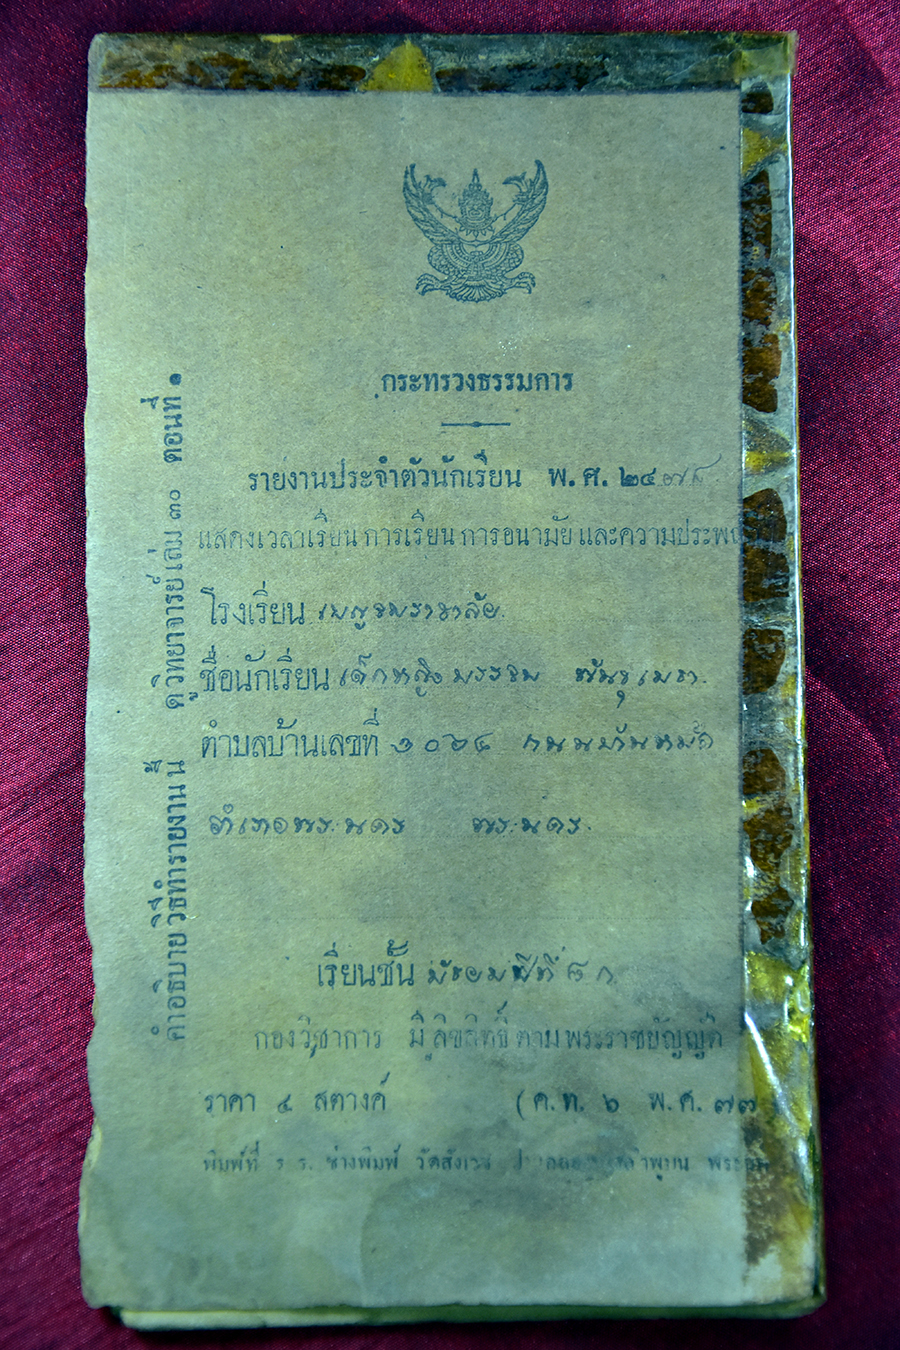 กระทรวงธรรมการ
รายงานประจำตัวนักเรียน พ.ศ. ๒๔๗๘
แสดงเวลาเรียน การเรียน การอนามัย และความประพ
โรงเรียน เบญจมราชาลัย
ชื่อนักเรียน เด็กหญิง พรรณ พันธุเมธา
ตำบลบ้านเลขที่ ๑๐๖๘ ถนน
อำเภอพระนคร พระนคร.
เรียนชั้น มัธยมปีที่ ๘ ก
กองวิชาการ มีลิขสิทธิ์ตามพระราชบัญญัติ
ราคา ๔ สตางค์ (ค.ท. ๖ พ.ศ. ๗๓
พิมพ์ที่ ร.ร. ช่างพิมพ์ วัดสังเวช
คำอธิบาย วิธีทำรายงานนี้ ดูวิทยาจารย์ เล่ม ๓๐ ตอนที่ ๑